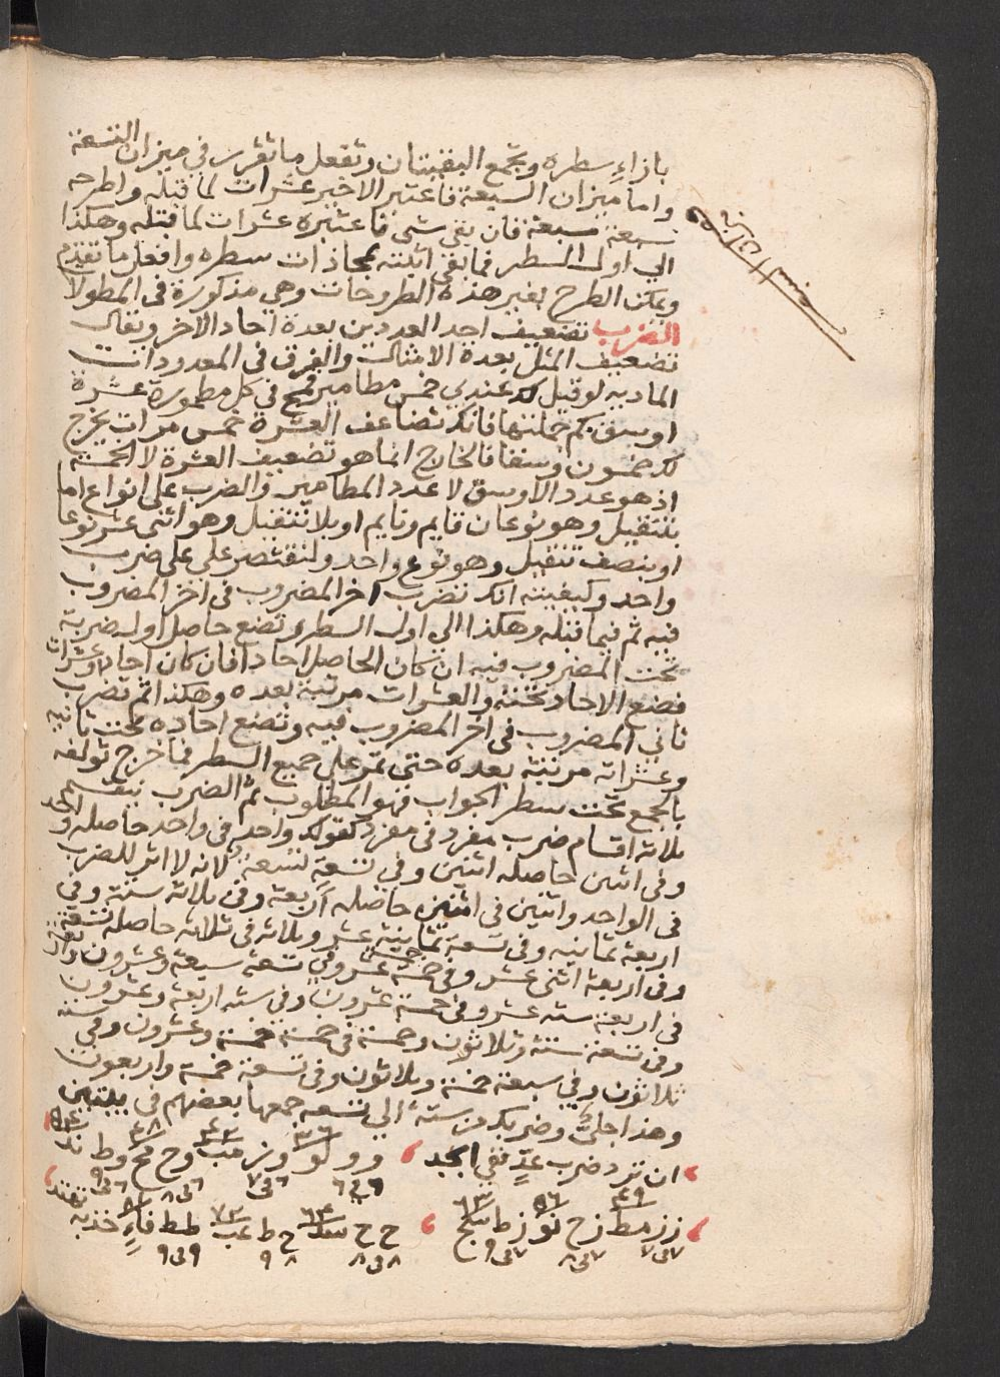 بازاء سطره وتجمع البقيتان وتفعل ما تقرر في ميزان التسعة
واما ميزان السبعة فاعتبر الاخير عشرات لما قبله واطرحه
سبعة سبعة فان بقي شي فاعتبره عشرات لما قبله وهكذا
الي اول السطر فما بقي اثبته بمحاذات سطره وافعل ما تقدم
ويمكن الطرح بغير هذه الطروحات وهي مذكورة في المطولات
الضرب تضعيف احد العددين بعدة احاد الاخر ويقال
تضعيف المثل بعدة الامثال والفرق في المعدودات
المادية لو قيل لك عندي خمس مطامير قمح في كل مطمورة عشرة
اوسق كم جملتها فانك تضاعف العشرة خمس مرات يخرج
لك خمسون وسقا فالخارج انما هو تضعيف العشرة لا الخمسة
اذ هو عدد الاوسق لا عدد المطامير والضرب علي انواع اما
بتنقيل وهو نوعان قايم ونايم او بلا تنقيل وهو اثني عشر نوعا
او بنصف تنقيل وهو نوع واحد ولنقتصر علي علي ضرب
واحد وكيفيته انك تضرب اخر المضروب في اخر المضروب
فيه ثم فيما قبله وهكذا الي اول السطر وتضع حاصل اول ضربة
تحت المضروب فيه ان كان الحاصل احادا فان كان احادا وعشرات
فضع الاحاد تحته والعشرات مرتبة بعده وهكذا ثم تضرب
ثاني المضروب في اخر المضروب فيه وتضع احاده تحت ثانيه
وعشراته مرتبة بعده حتي تمر علي جميع السطر فما خرج تولفه
بالجمع تحت سطر الجواب فهو المطلوب ثم الضرب ينقسم
ثلاثة اقسام ضرب مفرد في مفرد كقولك واحد في واحد حاصله واحد
وفي اثنين حاصله اثنين وفي تسعة تسعة لانه لا اثر للضرب
في الواحد واثنين في اثنين حاصله اربعة وفي ثلاثة ستة وفي
اربعة ثمانية وفي تسعة ثمانية عشر وثلاثة في ثلاثة حاصله تسعة
وفي اربعة اثني عشر وفي خمسة خمسة عشر وفي تسعة سبعة وعشرون واربعة
في اربعة ستة عشر وفي خمسة عشرون وفي ستة اربعة وعشرون
وفي تسعة ستة وثلاثون وخمسة في خمسة خمسة وعشرون وفي ستة
ثلاثون وفي سبعة خمسة وثلاثون وفي تسعة خمسة واربعون
وهذا جلي وضربك من ستة الي تسعة جمعها بعضهم في بيتين
ان ترد ضرب عد ففي ابجد وو لو وز مب وح مح وط ند
زز مط زح نو زط سج حح سد حط عب طط فا خذ به تهتد